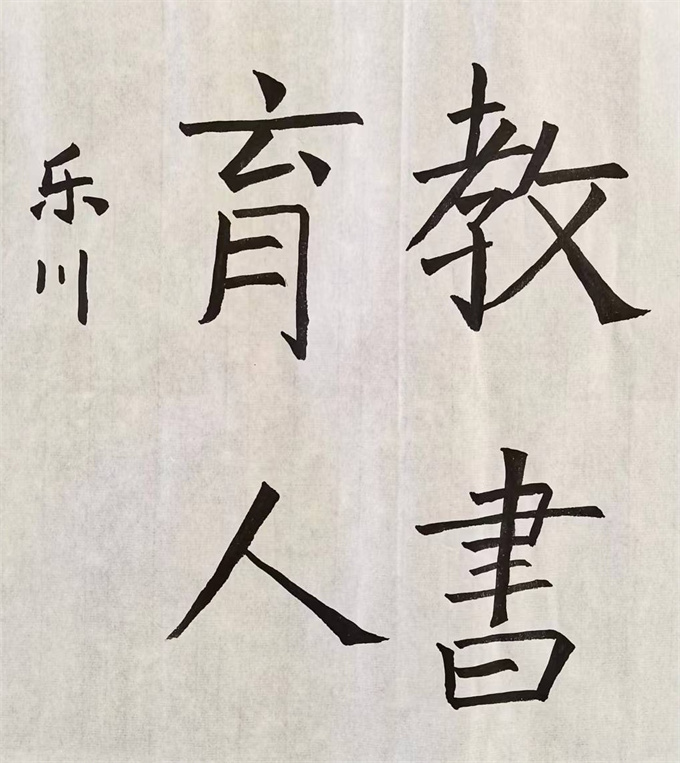 教書
育人
乐川